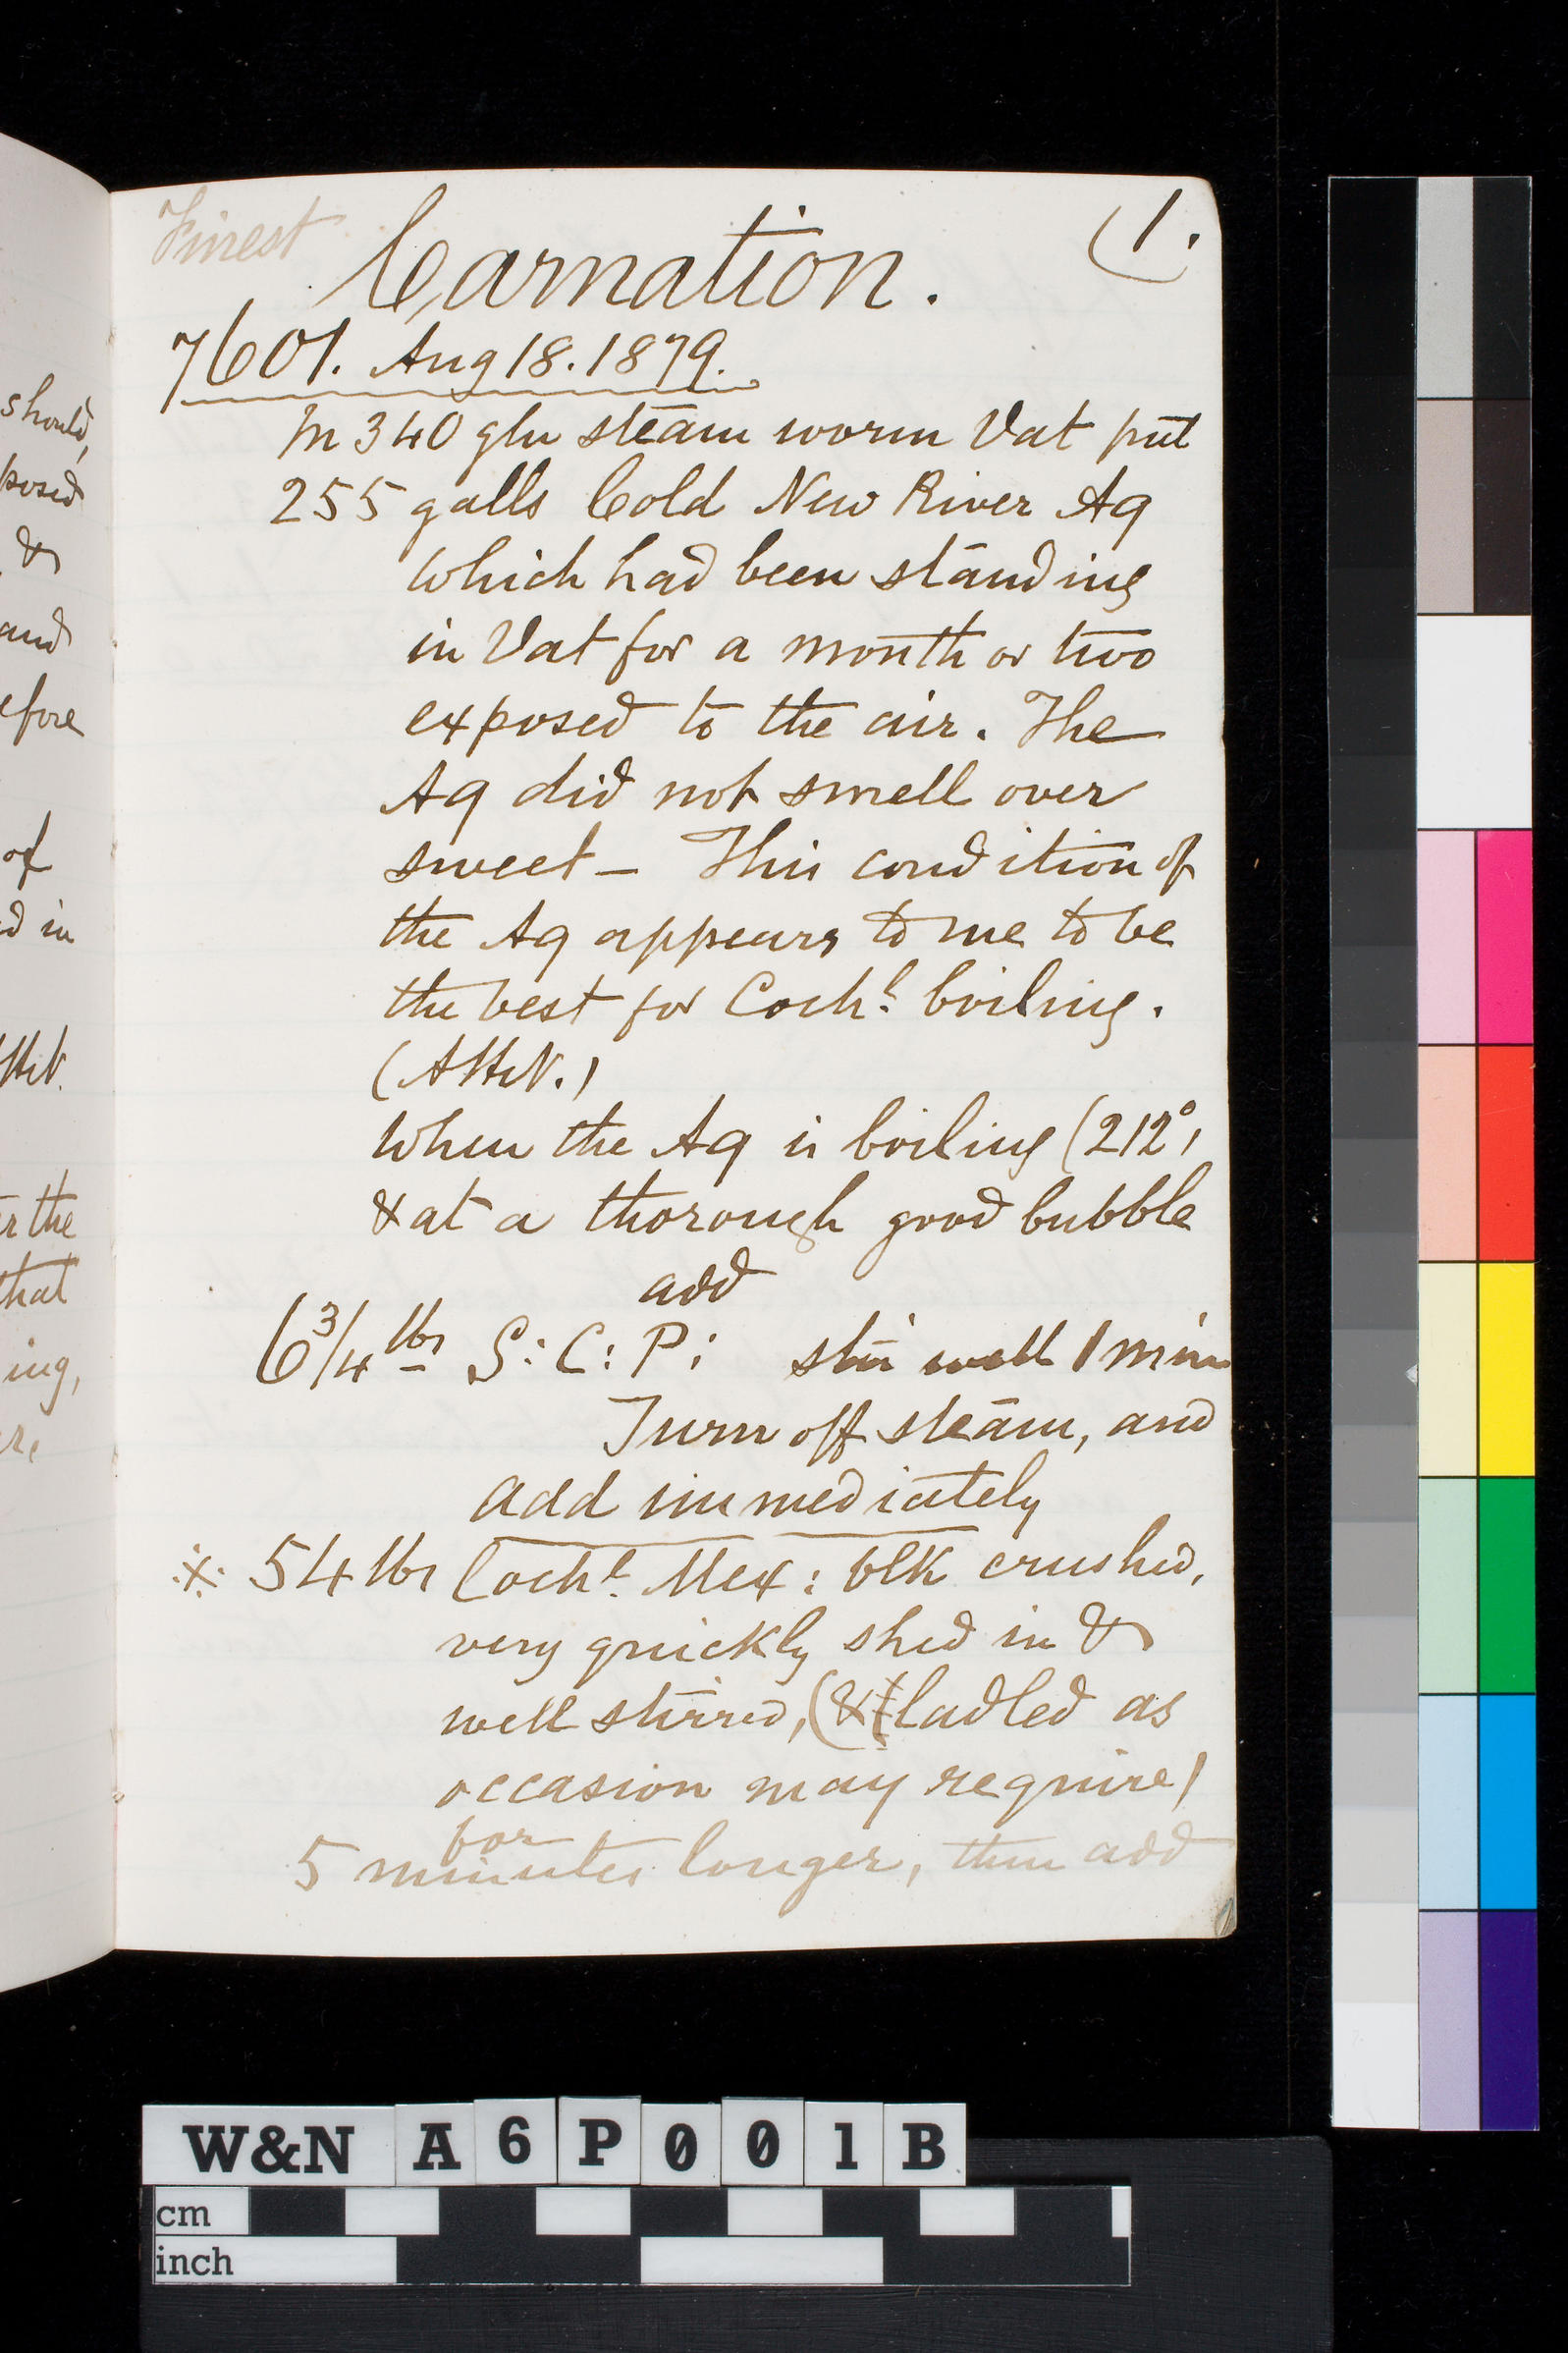 should,
posed
&
and
efore
of
d in
HN.
r the
that
ing,
re,
Finest
Carnation.
(1.
7601. Aug 18. 1879.
In 340 gln steam worm Vat put
255 galls Cold New River Aq
which had been standing
in Vat for a month or two
exposed to the air. The
Aq did not smell over
sweet - This condition of
the Aq appears to me to be
the best for Cochl boiling.
(AHN.)
When the Aq is boiling (212°)
& at a thorough good bubble
add
6 3/4 lbs S: C: P: stir well 1 min
Turn off steam, and
add immediately
※ 54 lbs Cochl Mex: blk crushed,
very quickly shed in &
well stirred, (& (ladled as
occasion may require)
for
5 minutes longer, then add
W&N A6P001B
cm
inch